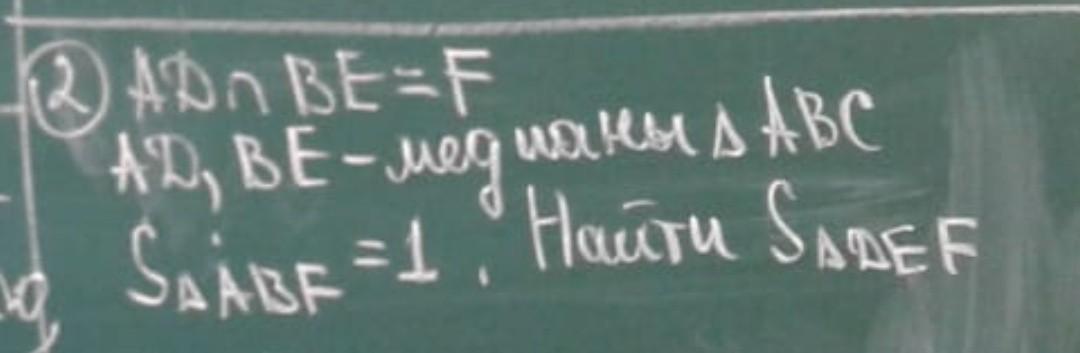 ② AD∩BE=F
AD, BE - медианы ΔABC
SΔABF=1. Найти SΔDEF